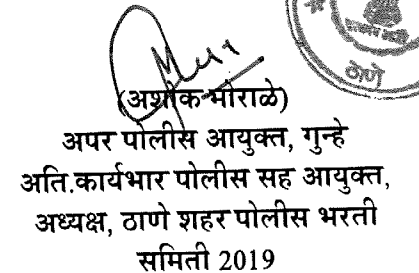 ठाणे
(अशोक मोराळे)
अपर पोलीस आयुक्त, गुन्हे
अति.कार्यभार पोलीस सह आयुक्त,
अध्यक्ष, ठाणे शहर पोलीस भरती
समिती 2019